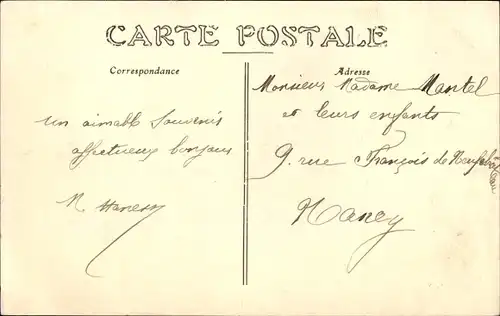 CARTE POSTALE
Correspondance
un aimable souvenir
affectueux bonjour
Adresse
Monsieur Madame Mantel
et leurs enfants
9. rue François de Neufchâteau
Nancy